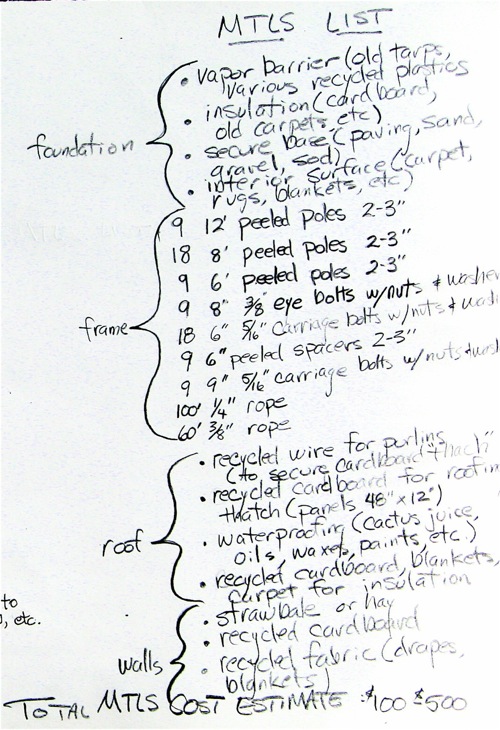 MTLS LIST
foundation
• vapor barrier (old tarps,
various recycled plastics
• insulation (cardboard,
old carpets, etc)
• secure base (paving, sand,
gravel, sod)
• interior surface (carpet,
rugs, blankets, etc)
frame
9 12' peeled poles 2-3"
18 8' peeled poles 2-3"
9 6' peeled poles 2-3"
9 8" 3/8" eye bolts w/nuts & washer
18 6" 5/16" carriage bolts w/nuts &
9 6" peeled spacers 2-3"
9 9" 5/16" carriage bolts w/nuts &
100' 1/4" rope
60' 3/8" rope
roof
• recycled wire for purlins
(to secure cardboard "thach"
• recycled cardboard for roofin
thatch (panels 48" x 12')
• waterproofing (cactus juice,
oils, waxes, paints, etc.)
• recycled cardboard, blankets,
carpet for insulation
to
, etc.
walls
• strawbale or hay
• recycled cardboard
• recycled fabric (drapes,
blankets)
TOTAL MTLS COST ESTIMATE : $100 - $500